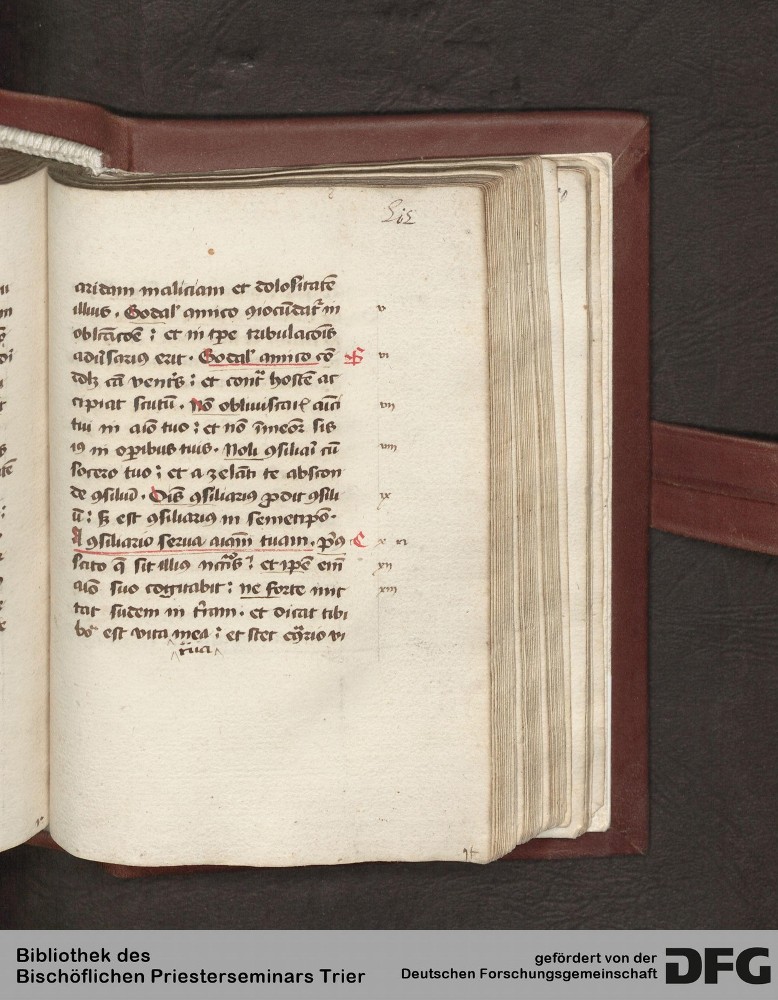 aridam maliciam et dolositatē
illius . Sodal' amico ꝯiocūdat᷑ in
oblcācōē : et in tp̄e tribulacōīs
adūsariꝰ erit . Sodal' amico cō
dolꝫ cā ventr̄s : et cont᷑ hostē ac
cipiat scutū . Nō obliuiscar̄ aīci
tui in aīo tuo : et nō īmeōr sis
iꝰ in opībus tuis . Noli ꝯsiliaī cū
socero tuo : et a zelātī te abscon
de ꝯsiliū . Oīs ꝯsiliariꝰ ꝓdit ꝯsili
ū : sꝫ est ꝯsiliariꝰ in semetip̄o .
A ꝯsiliario serua aīam tuam . pͥꝰ
scito q̄ sit illiꝰ ncc̄itas : et ip̄e eī
aīo suo cogitabit : ne forte mit
tat sudem in t̄ram . et dicat tibi
boᵃ est vita mea : et stet ꝯͣrio vi
tua
v
vi
vii
viii
ix
x xi
xii
xiii
Bibliothek des
Bischöflichen Priesterseminars Trier
gefördert von der
Deutschen Forschungsgemeinschaft
DFG